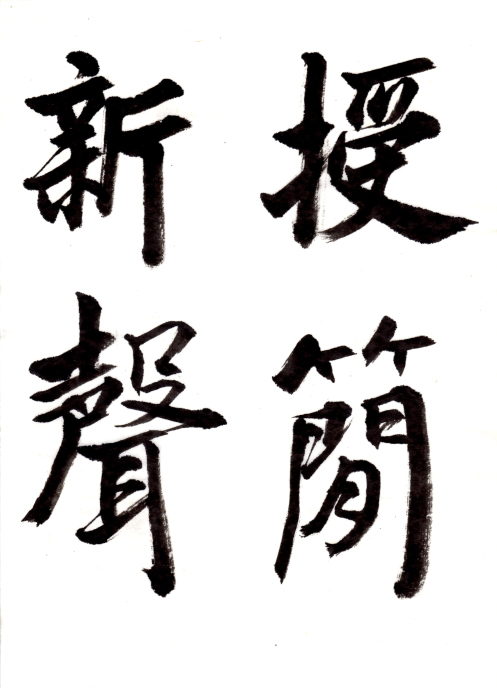 授簡
新聲